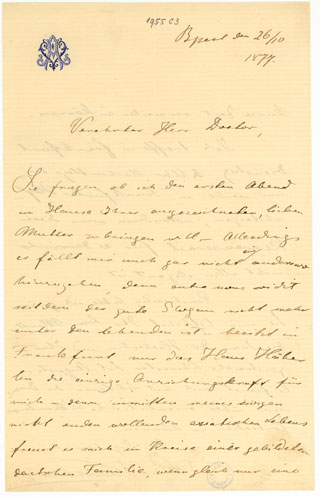 1955 03
Bpest den 26/10
1877.
Verehrter Herr Doctor,
Sie fragen ob ich den ersten Abend
im Hause Ihrer angenehmen, lieben
Mutter zubringen will – Allerdings
es fällt mir auch gar nicht ein anderswo
hinzugehen denn
seitdem der gute nicht mehr
unter den Lebenden ist – besitzt in
Frankfurt nur das Haus
die einzige Anziehungskraft für
mich – denn inmitten meines ewigen
nicht enden wollenden Lebens
freut es mich im Kreise einer gebildeten
deutschen Familie, wenn gleich nur eine